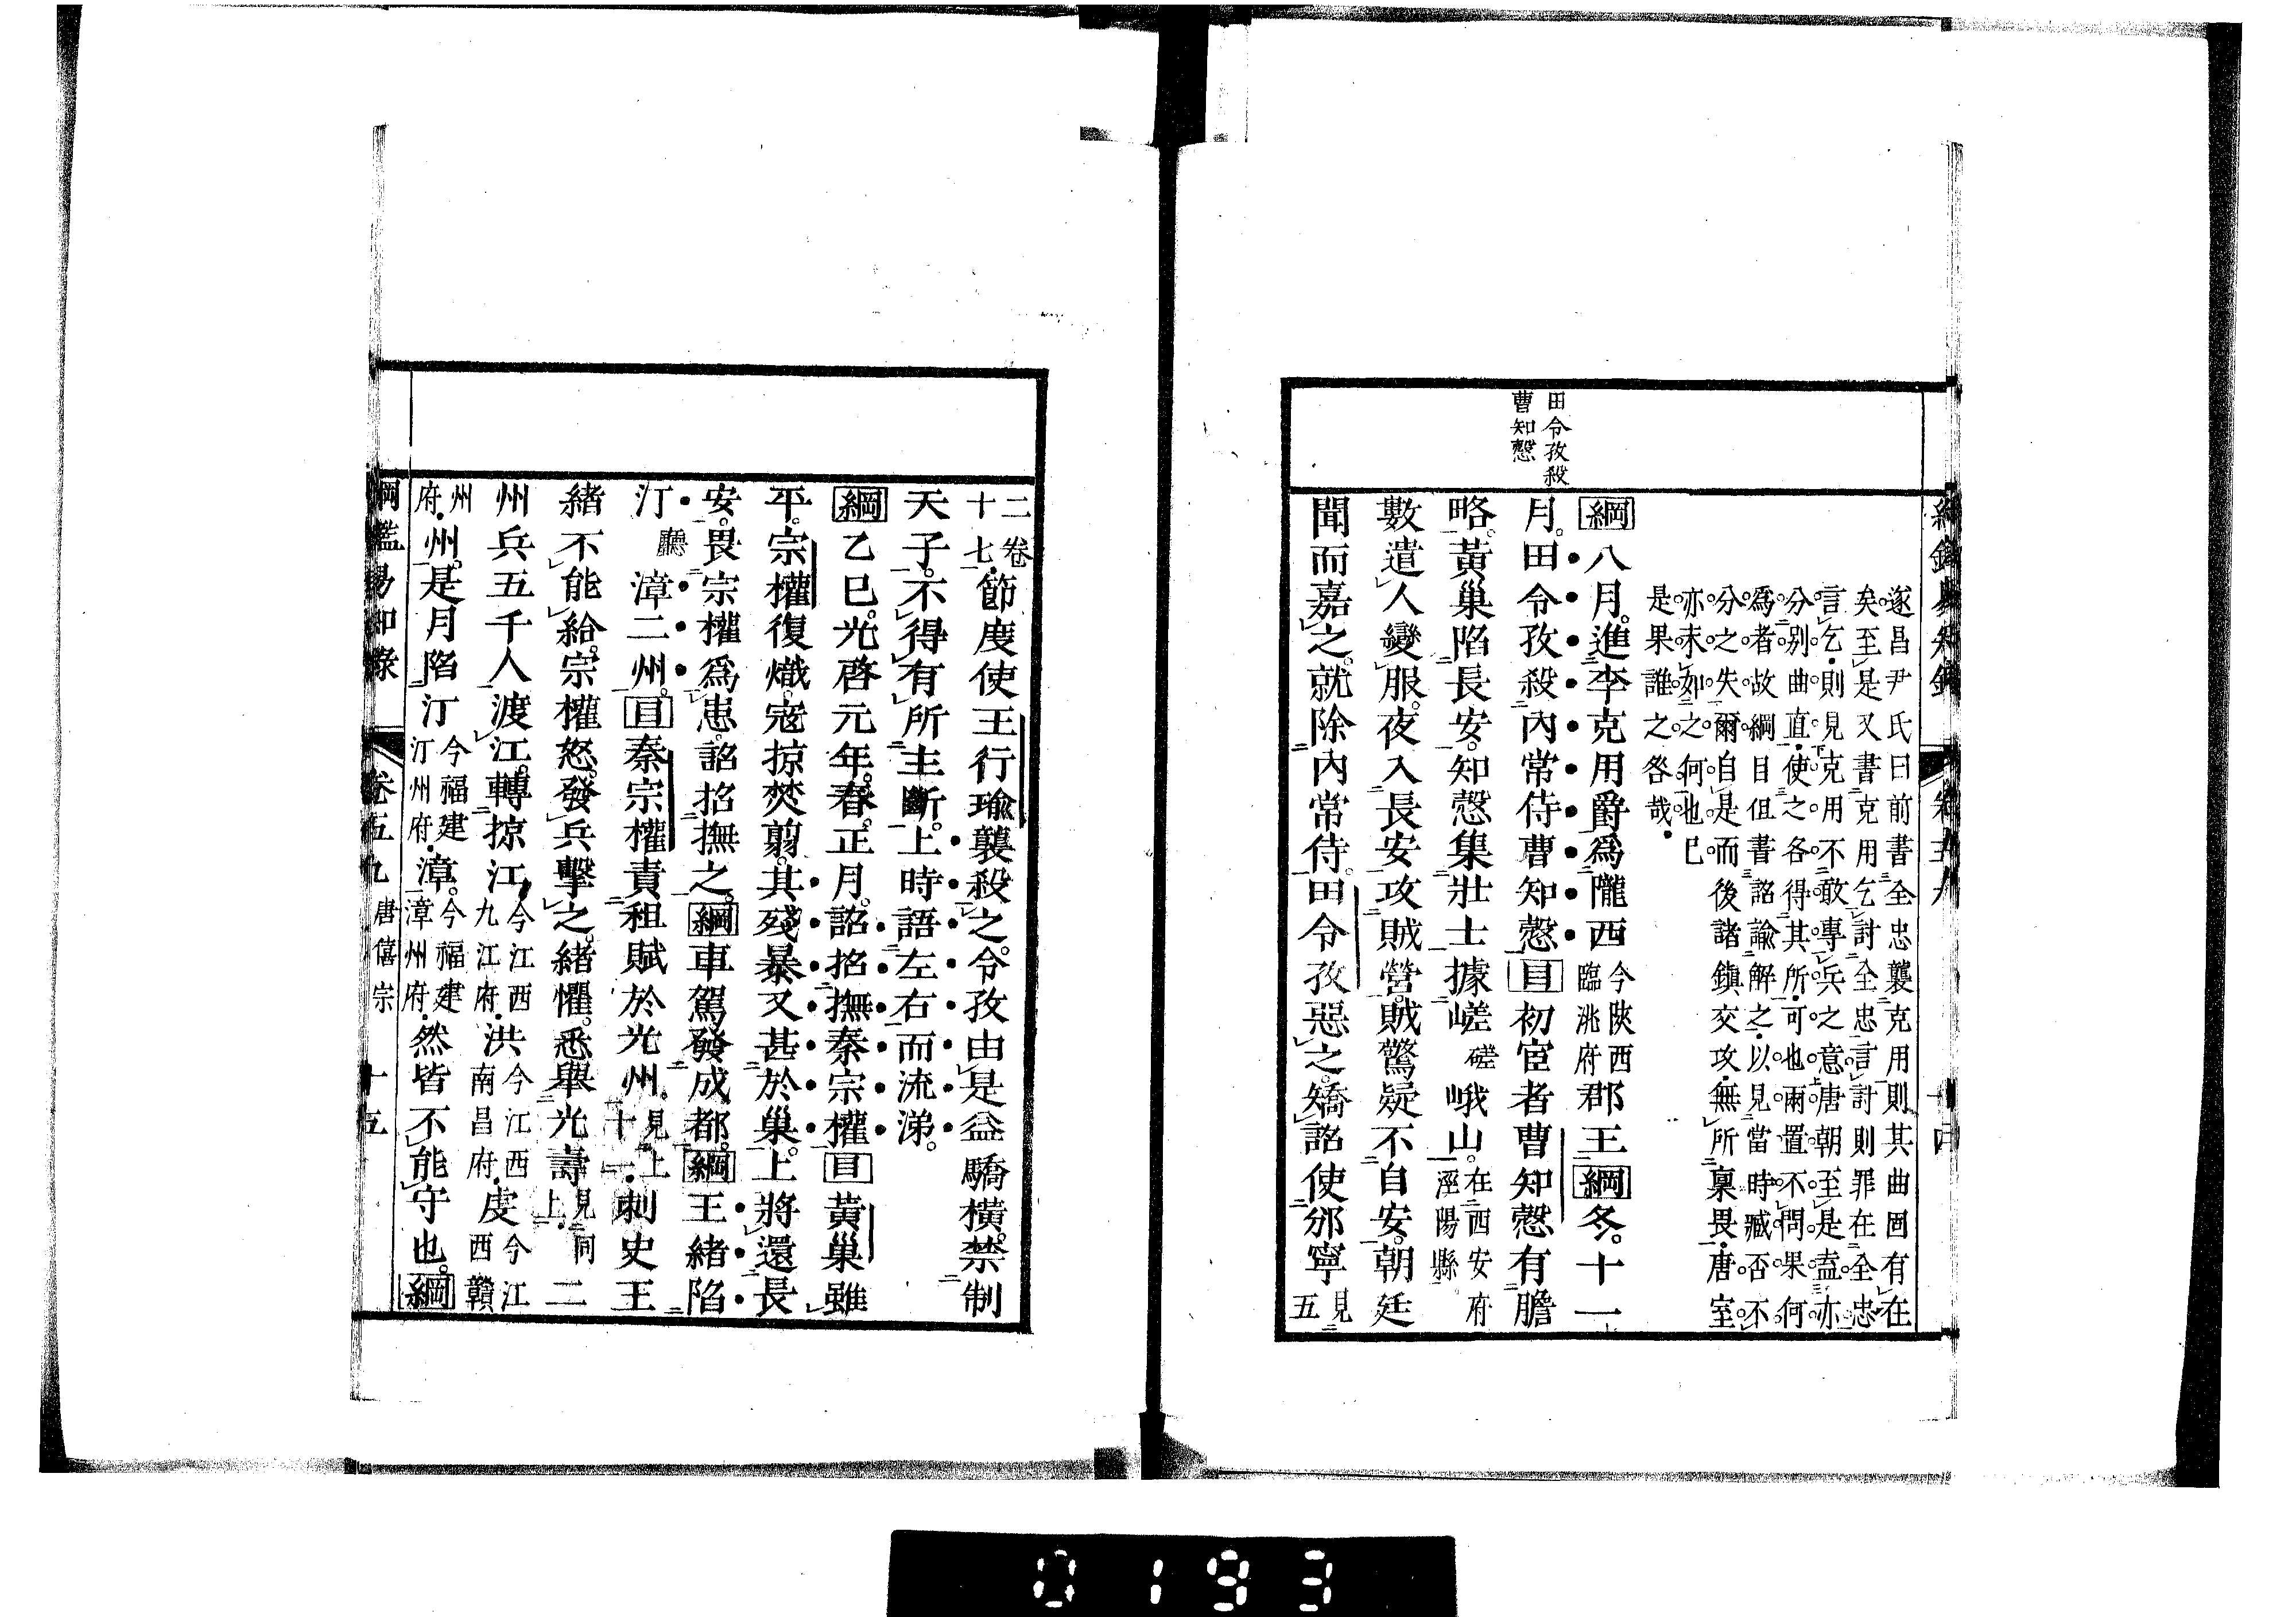 田令孜殺
曹知慤
遂昌尹氏曰前書全忠襲克用則其曲固有在
矣至是又書克用乞討全忠言討則罪在全忠
言乞則見克用不敢專兵之意唐朝至是盍亦
分別曲直使之各得其所可也兩置不問果何
爲者故綱目但書詔諭解之以見當時臧否不
分之失爾自是而後諸鎭交攻無所稟畏唐室
亦未如之何也已
是果誰之咎哉
綱八月進李克用爵爲隴西今陜西臨洮府郡王綱冬十一
月田令孜殺內常侍曹知慤目初宦者曹知慤有膽
略黃巢陷長安知慤集壯士據嵯磋峨山在西安府涇陽縣
數遣人變服夜入長安攻賊營賊驚疑不自安朝廷
聞而嘉之就除內常侍田令孜惡之矯詔使邠寧見五
二卷十七節度使王行瑜襲殺之令孜由是益驕橫禁制
天子不得有所主斷上時語左右而流涕
綱乙巳光啓元年春正月詔招撫秦宗權目黃巢雖
平宗權復熾寇掠焚翦其殘暴又甚於巢上將還長
安畏宗權爲患詔招撫之綱車駕發成都綱王緒陷
汀廳漳二州目秦宗權責租賦於光州見上十一刺史王
緒不能給宗權怒發兵擊之緒懼悉舉光壽見同上二
州兵五千人渡江轉掠江今江西九江府洪今江西南昌府虔今江西贛
州府州是月陷汀今福建汀州府漳今福建漳州府然皆不能守也綱
綱鑑易知錄 卷五九 唐僖宗 十五
0193